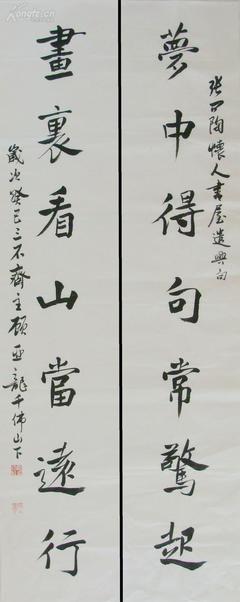 張問陶懷人書屋遣興句
夢中得句常驚起
畫裏看山當遠行
歲次癸巳三不齋主顧亞龍千佛山下